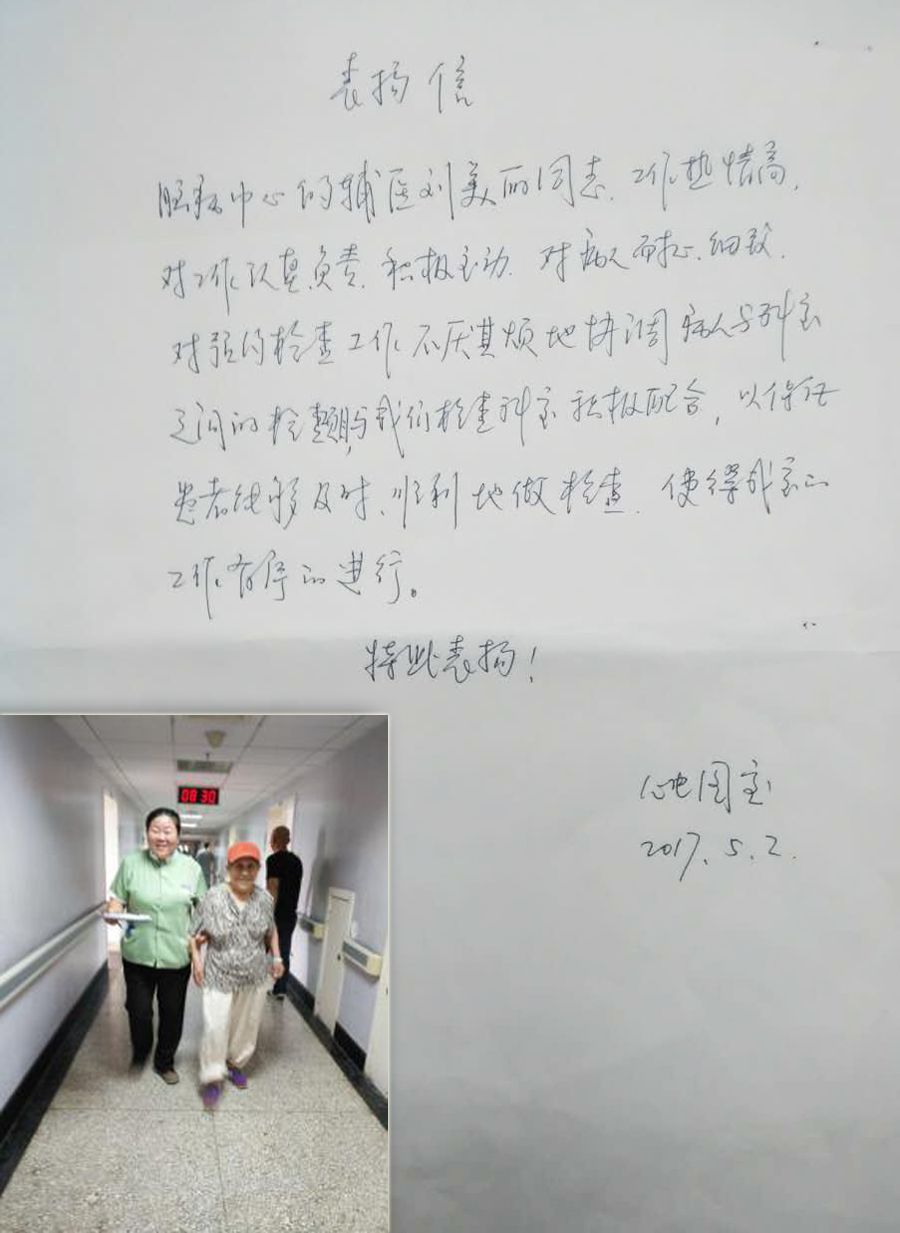 表扬信
脑病中心的辅医刘美丽同志、工作热情高、
对工作认真负责、积极主动、对病人耐心、细致、
对强的检查工作不厌其烦地协调病人与科室
之间的检查,与我们检查科室积极配合,以保证
患者能够及时、顺利地做检查、使得我室的
工作有序的进行。
特此表扬!
心电图室
2017.5.2.
08 30